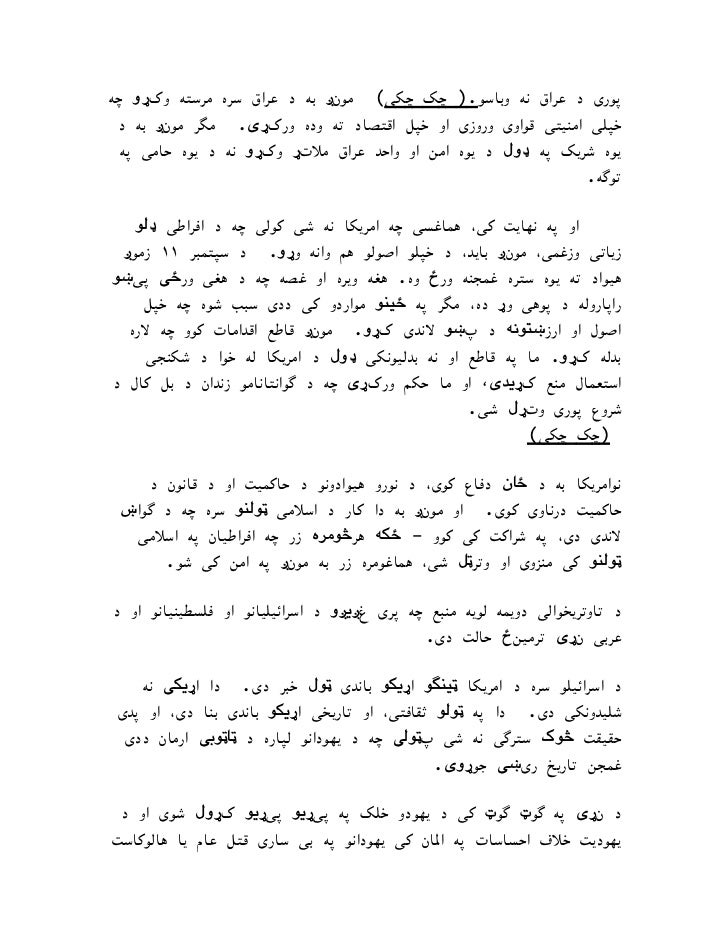 پوری د عراق نه وباسو. ( چک چکی) مونږ به د عراق سره مرسته وکړو چه
خپلی امنیتی قواوی وروزی او خپل اقتصاد ته وده ورکړی. مگر مونږ به د
یوه شریک په ډول د یوه امن او واحد عراق ملاتړ وکړو نه د یوه حامی په
توگه.
او په نهایت کی، هماغسی چه امریکا نه شی کولی چه د افراطی ډلو
زیاتی وزغمی، مونږ باید، د خپلو اصولو هم وانه وړو. د سپتمبر ۱۱ زموږ
هیواد ته یوه ستره غمجنه ورځ وه. هغه ویره او غصه چه د هغی ورځی پیښو
راپاروله د پوهی وړ ده، مگر په ځینو مواردو کی ددی سبب شوه چه خپل
اصول او ارزښتونه د پښو لاندی کړو. مونږ قاطع اقدامات کوو چه لاره
بدله کړو. ما په قاطع او نه بدلیونکی ډول د امریکا له خوا د شکنجی
استعمال منع کړیدی، او ما حکم ورکړی چه د گوانتانامو زندان د بل کال د
شروع پوری وتړل شی.
(چک چکی)
نوامریکا به د ځان دفاع کوی، د نورو هیوادونو د حاکمیت او د قانون د
حاکمیت درناوی کوی. او مونږ به دا کار د اسلامی ټولنو سره چه د گواښ
لاندی دی، په شراکت کی کوو – ځکه هرڅومره زر چه افراطیان په اسلامی
ټولنو کی منزوی او وترټل شی، هماغومره زر به مونږ په امن کی شو.
د تاوتریخوالی دویمه لویه منبع چه پری غږیږو د اسرائیلیانو او فلسطینیانو او د
عربی نړی ترمینځ حالت دی.
د اسرائیلو سره د امریکا ټینگو اړیکو باندی ټول خبر دی. دا اړیکی نه
شلیدونکی دی. دا په ټولو ثقافتی، او تاریخی اړیکو باندی بنا دی، او پدی
حقیقت څوک سترگی نه شی پټولی چه د یهودانو لپاره د ټاټوبی ارمان ددی
غمجن تاریخ ریښی جوړوی.
د نړی په گوټ گوټ کی د یهودو خلک په پیړیو پیړیو کړول شوی او د
یهودیت خلاف احساسات په المان کی یهودانو په بی ساری قتل عام یا هالوکاست